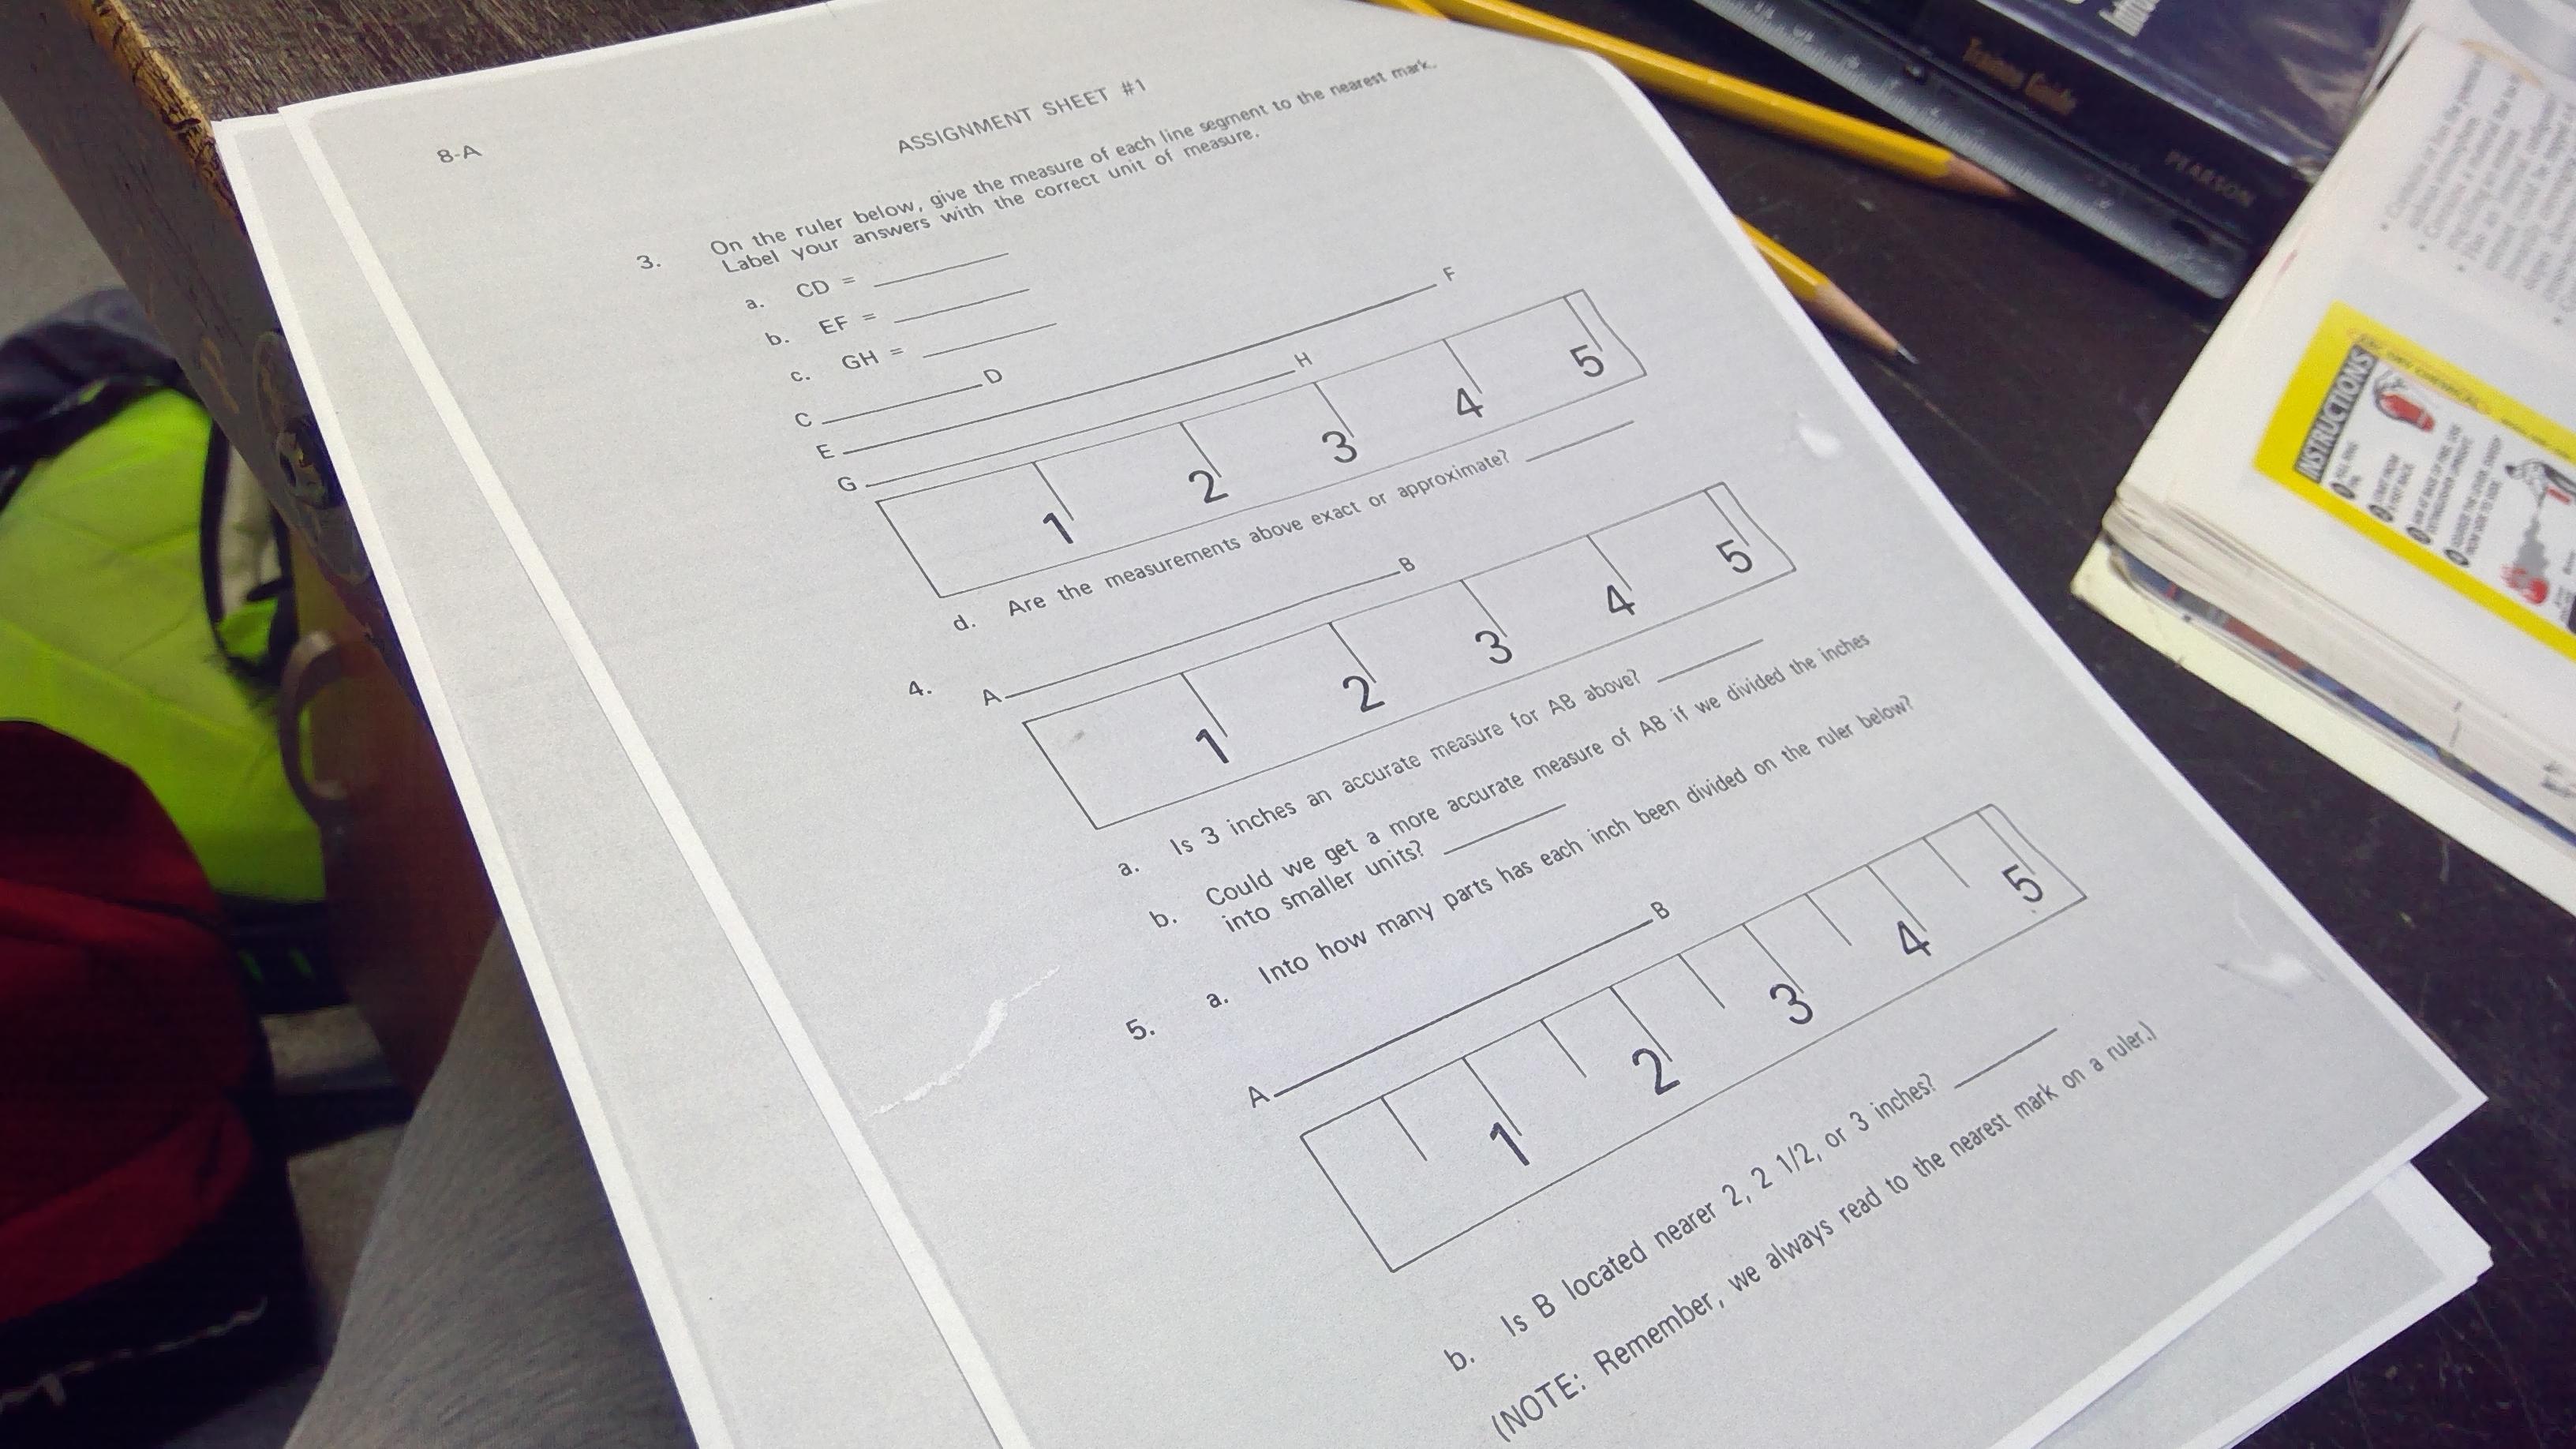 8-A
ASSIGNMENT SHEET #1
3. On the ruler below, give the measure of each line segment to the nearest mark.
Label your answers with the correct unit of measure.
a. CD =
b. EF =
c. GH =
C D
E F
G H
1 2 3 4 5
d. Are the measurements above exact or approximate?
4. A B
1 2 3 4 5
a. Is 3 inches an accurate measure for AB above?
b. Could we get a more accurate measure of AB if we divided the inches
into smaller units?
5. a. Into how many parts has each inch been divided on the ruler below?
A B
1 2 3 4 5
b. Is B located nearer 2, 2 1/2, or 3 inches?
(NOTE: Remember, we always read to the nearest mark on a ruler.)
Trainee Guide
PEARSON
INSTRUCTIONS